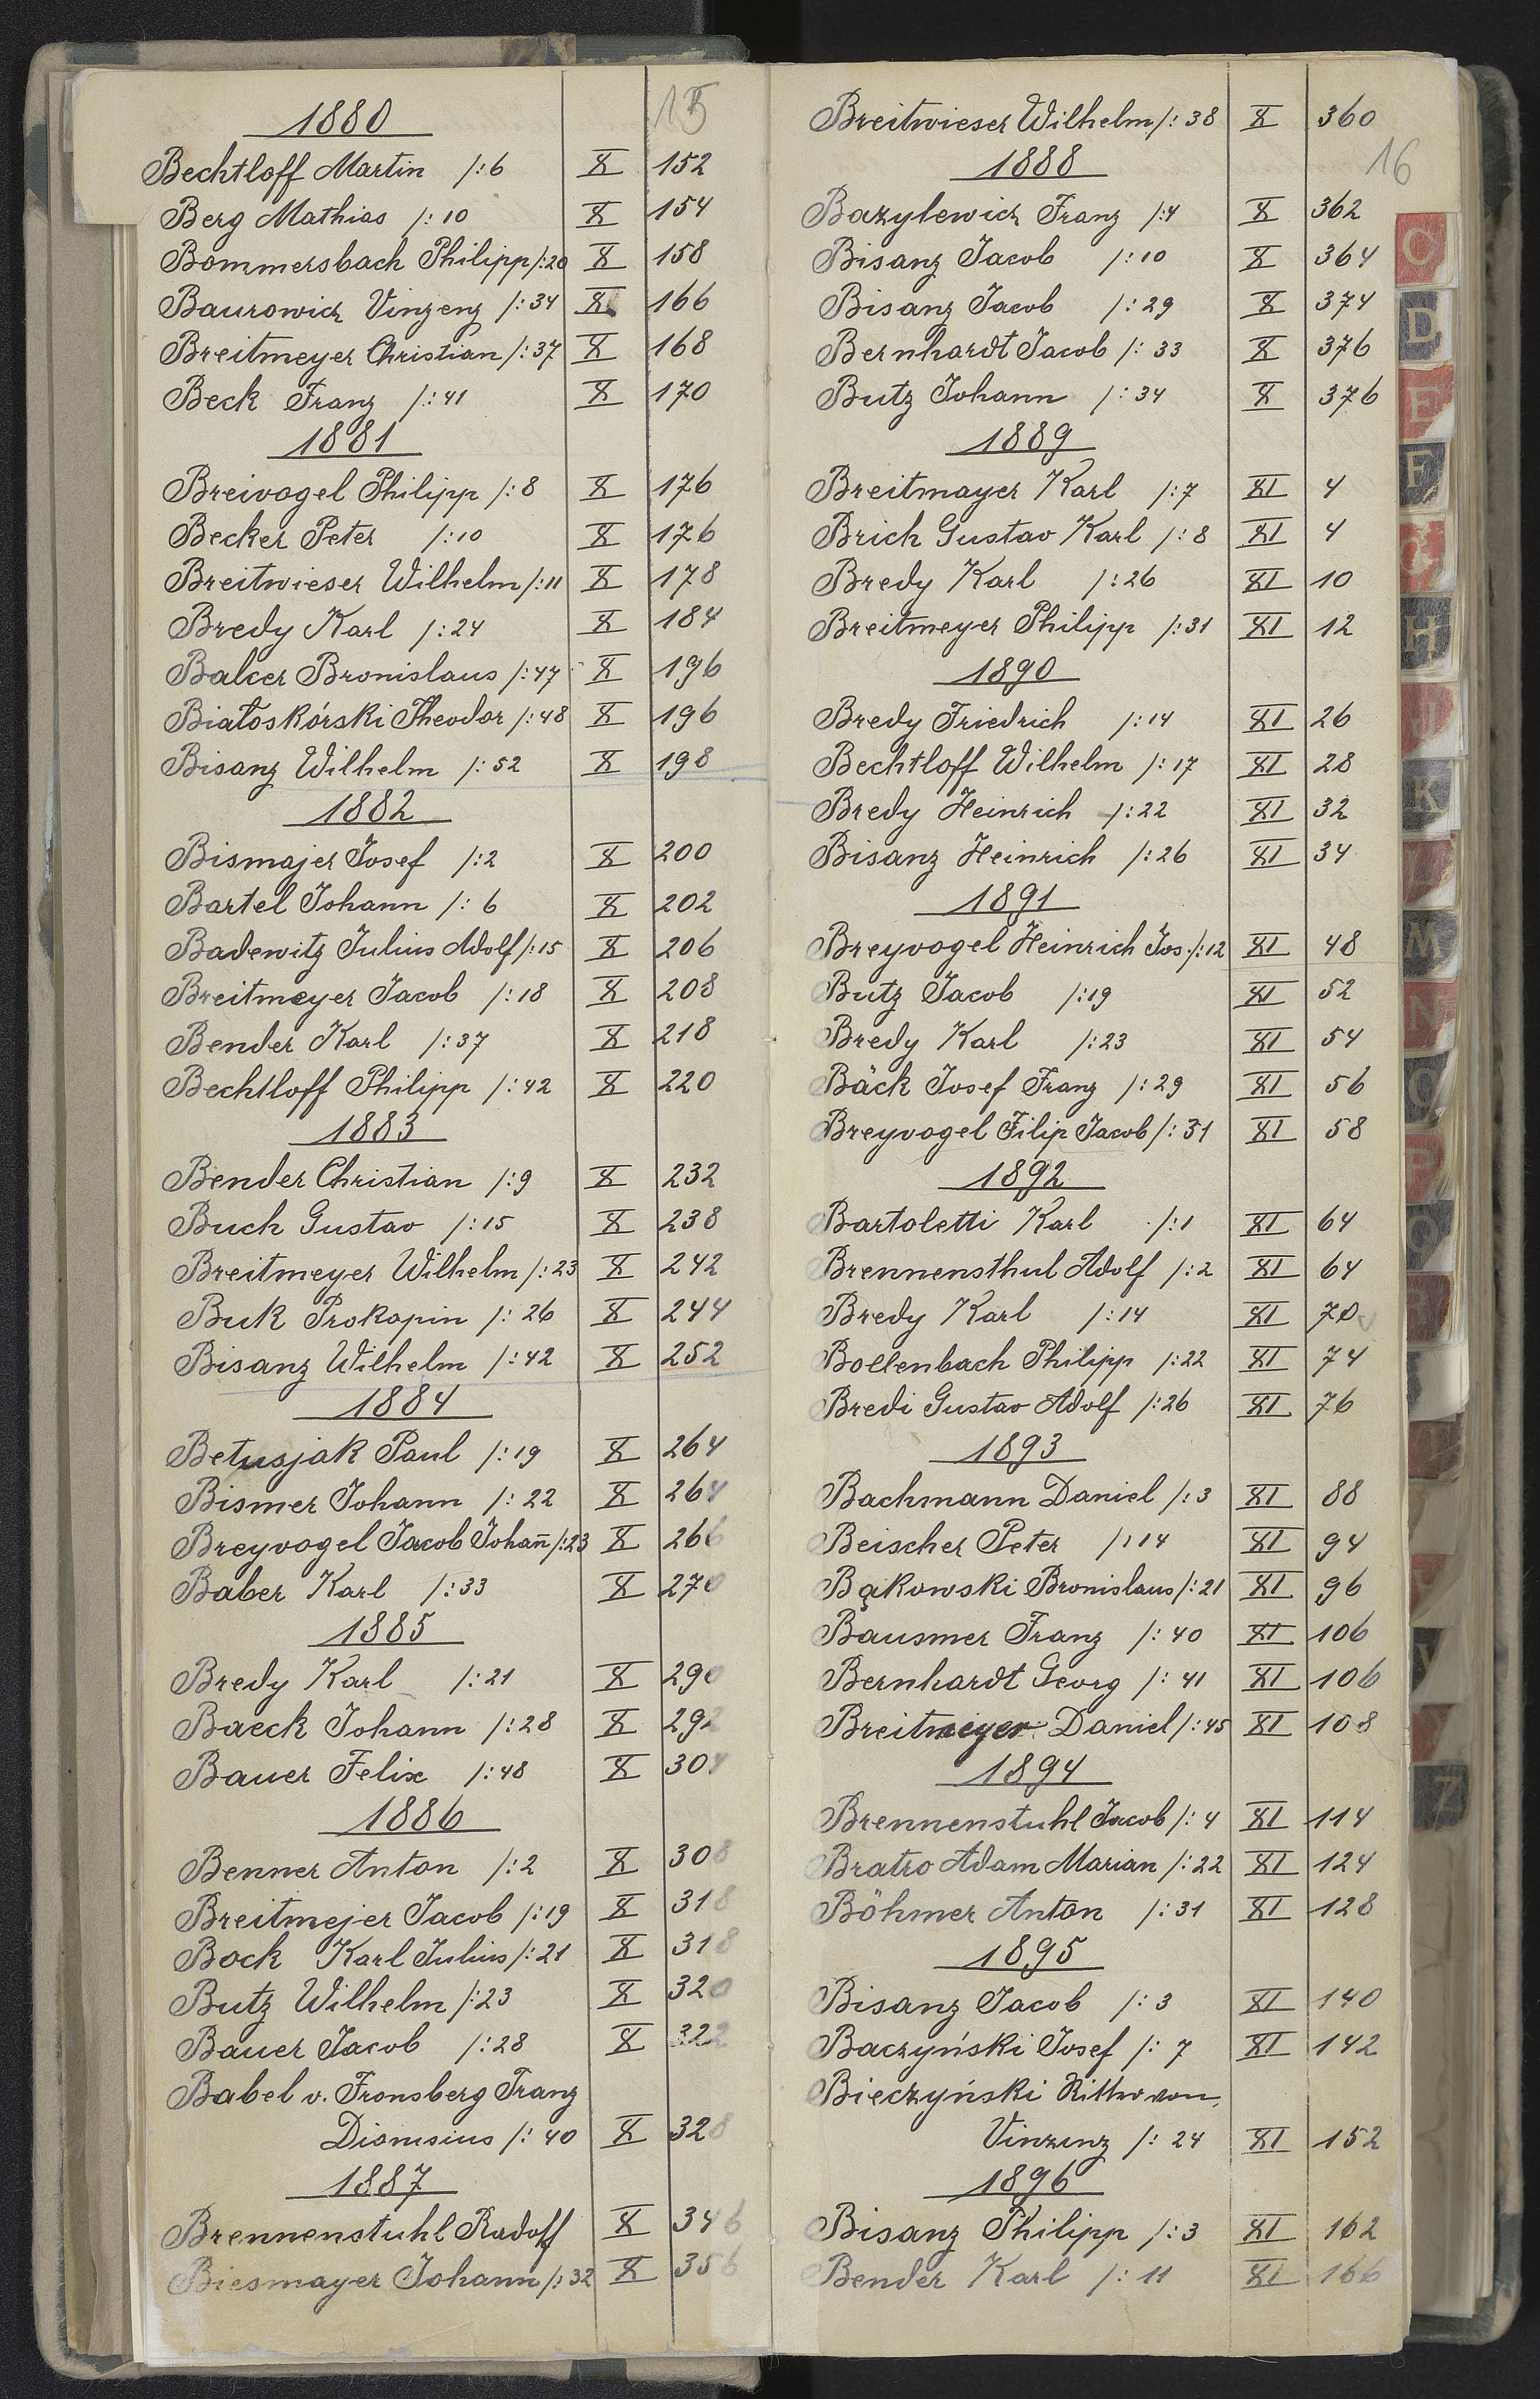 15
1880
Bechtloff Martin /:6 X 152
Berg Mathias /:10 X 154
Bommersbach Philipp /:20 X 158
Baurowicz Vinzenz /:34 X 166
Breitmeyer Christian /:37 X 168
Beck Franz /:41 X 170
1881
Breivogel Philipp /:8 X 176
Becker Peter /:10 X 176
Breitwieser Wilhelm /:11 X 178
Bredy Karl /:24 X 184
Balcer Bronislaus /:47 X 196
Białoskórski Theodor /:48 X 196
Bisanz Wilhelm /:52 X 198
1882
Bismajer Josef /:2 X 200
Bartel Johann /:6 X 202
Badewitz Julius Adolf /:15 X 206
Breitmeyer Jacob /:18 X 208
Bender Karl /:37 X 218
Bechtloff Philipp /:42 X 220
1883
Bender Christian /:9 X 232
Buch Gustav /:15 X 238
Breitmeyer Wilhelm /:23 X 242
Buk Prokopin /:26 X 244
Bisanz Wilhelm /:42 X 252
1884
Betusjak Paul /:19 X 264
Bismer Johann /:22 X 264
Breyvogel Jacob Johañ /:23 X 266
Baber Karl /:33 X 270
1885
Bredy Karl /:21 X 290
Baeck Johann /:28 X 292
Bauer Felix /:48 X 304
1886
Benner Anton /:2 X 308
Breitmejer Jacob /:19 X 318
Bock Karl Julius /:21 X 318
Butz Wilhelm /:23 X 320
Bauer Jacob /:28 X 322
Babel v. Fronsberg Franz
Dionisius /:40 X 328
1887
Brennenstuhl Radolf X 346
Biesmayer Johann /:32 X 356
Breitwieser Wilhelm /:38 X 360
16
1888
Bazylewicz Franz /:4 X 362
Bisanz Jacob /:10 X 364
Bisanz Jacob /:29 X 374
Bernhardt Jacob /:33 X 376
Butz Johann /:34 X 376
1889
Breitmayer Karl /:7 XI 4
Brich Gustav Karl /:8 XI 4
Bredy Karl /:26 XI 10
Breitmeyer Philipp /:31 XI 12
1890
Bredy Friedrich /:14 XI 26
Bechtloff Wilhelm /:17 XI 28
Bredy Heinrich /:22 XI 32
Bisanz Heinrich /:26 XI 34
1891
Breyvogel Heinrich Jos. /:12 XI 48
Butz Jacob /:19 XI 52
Bredy Karl /:23 XI 54
Bäck Josef Franz /:29 XI 56
Breyvogel Filip Jacob /:31 XI 58
1892
Bartoletti Karl /:1 XI 64
Brennensthul Adolf /:2 XI 64
Bredy Karl /:14 XI 70
Bollenbach Philipp /:22 XI 74
Bredi Gustav Adolf /:26 XI 76
1893
Bachmann Daniel /:3 XI 88
Beischer Peter /:14 XI 94
Bąkowski Bronislaus /:21 XI 96
Bausmer Franz /:40 XI 106
Bernhardt Georg /:41 XI 106
Breitmeyer Daniel /:45 XI 108
1894
Brennenstuhl Jacob /:4 XI 114
Bratro Adam Marian /:22 XI 124
Böhmer Anton /:31 XI 128
1895
Bisanz Jacob /:3 XI 140
Baczyński Josef /:7 XI 142
Bieczyński Ritter von
Vinzenz /:24 XI 152
1896
Bisanz Philipp /:3 XI 162
Bender Karl /:11 XI 166
C
D
E
F
G
H
J
K
M
N
O
P
Q
Z